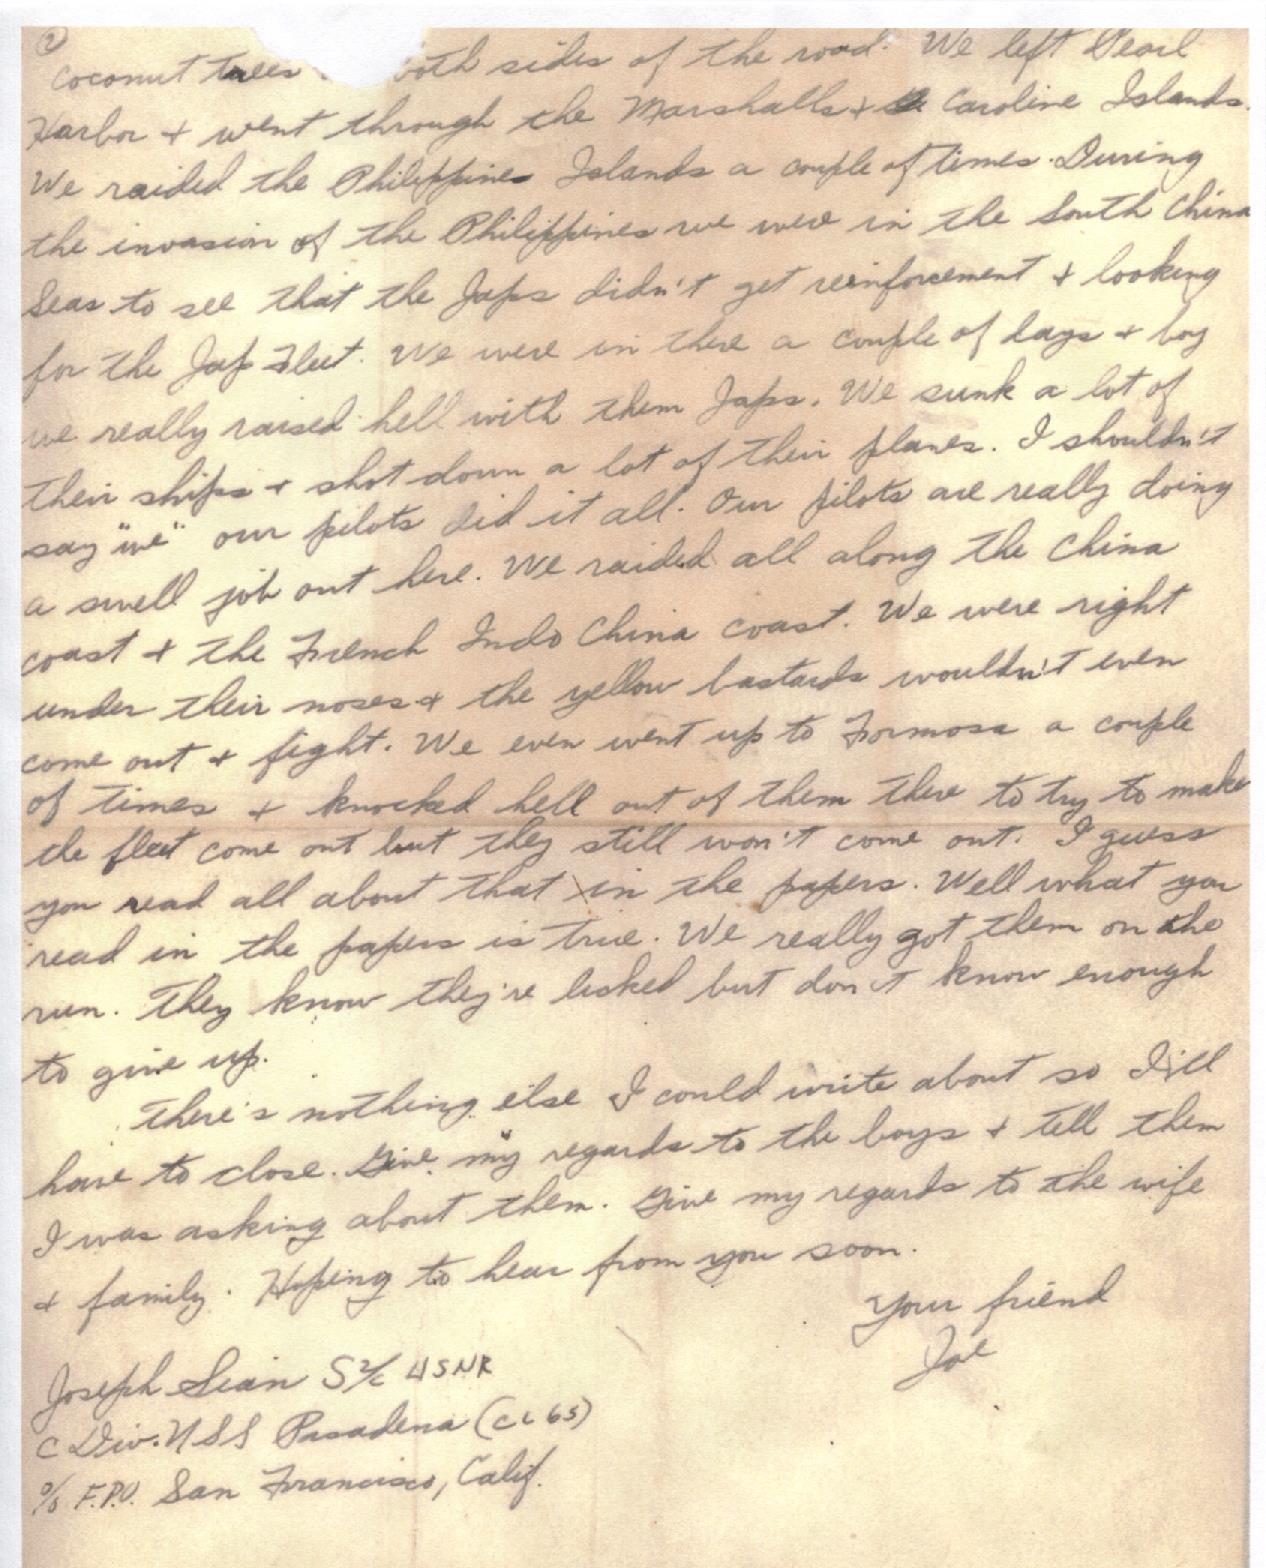 2
coconut trees both sides of the road. We left Pearl
Harbor + went through the Marshalls + Caroline Islands.
We raided the Philippines Islands a couple of times. During
the invasion of the Philippines we were in the South China
Seas to see that the Japs didn't get reinforcement + looking
for the Jap Fleet. We were in there a couple of days + boy
we really raised hell with them Japs. We sunk a lot of
their ships + shot down a lot of their planes. I shouldn't
say "we" our pilots did it all. Our pilots are really doing
a swell job out here. We raided all along the China
coast + the French Indo China coast. We were right
under their noses + the yellow bastards wouldn't even
come out + fight. We even went up to Formosa a couple
of times + knocked hell out of them there to try to make
the fleet come out but they still won't come out. I guess
you read all about that in the papers. Well what you
read in the papers is true. We really got them on the
run. They know they're licked but don't know enough
to give up.
There's nothing else I could write about so I'll
have to close. Give my regards to the boys + tell them
I was asking about them. Give my regards to the wife
+ family. Hoping to hear from you soon.
Your friend
Joe
Joseph S 2/c USNR
C Div. USS Pasadena (CL 65)
c/o F.P.O. San Francisco, Calif.